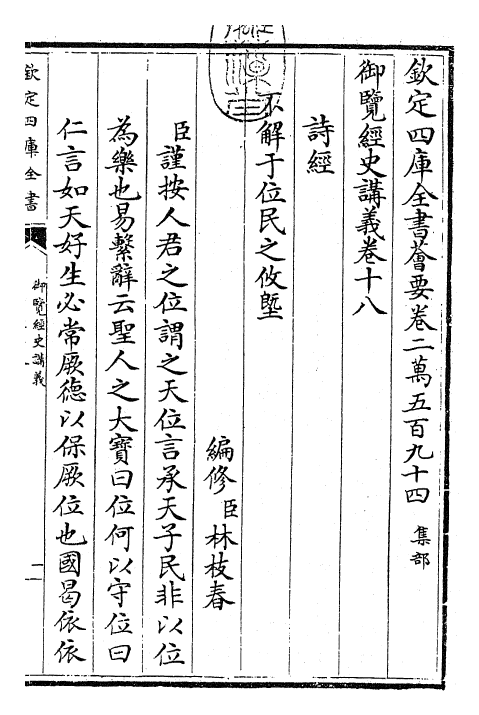 欽定四庫全書薈要卷二萬五百九十四 集部
御覽經史講義卷十八
詩經
不解于位民之攸塈
編修臣林枝春
臣謹按人君之位謂之天位言承天子民非以位
為樂也易繫辭云聖人之大寶曰位何以守位曰
仁言如天好生必常厥德以保厥位也國曷依依
欽定四庫全書
御覽經史講義
一